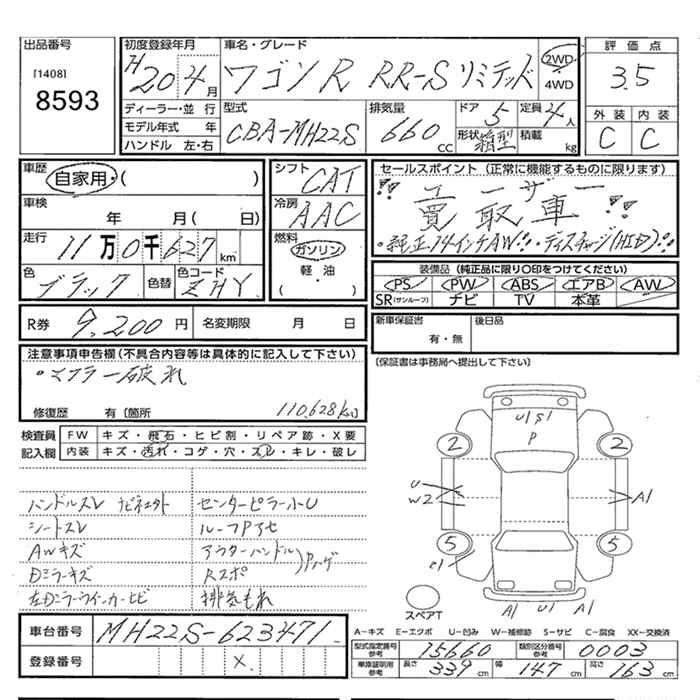 出品番号
[1408]
8593
初度登録年月
H20年4月
車名・グレード
ワゴンR RR-Sリミテッド
2WD
4WD
評価点
3.5
ディーラー・並行
モデル年式 年
ハンドル 左・右
型式
CBA-MH22S
排気量
660cc
ドア
5
形状
箱型
定員
4人
積載
kg
外装 内装
C C
車歴
自家用・( )
車検
年 月( 日)
走行
11万0千627km
色
ブラック
色替
色コード
ZHY
シフト
CAT
冷房
AAC
燃料
ガソリン
軽・油
( )
セールスポイント(正常に機能するものに限ります)
ユーザー
買取車
・純正14インチAW!!・ディスチャージ(HID)!!
装備品(純正品に限り○印をつけてください)
PS PW ABS エアB AW
SR(サンルーフ) ナビ TV 本革
R券 9,200円
名変期限 月 日
新車保証書
有・無
後日品
(保証書は事務局へ提出して下さい)
注意事項申告欄(不具合内容等は具体的に記入して下さい)
・マフラー破れ
修復歴 有〔箇所
110,628km〕
検査員
記入欄
FW キズ・飛石・ヒビ割・リペア跡・X要
内装 キズ・汚れ・コゲ・穴・スレ・キレ・破レ
ハンドルスレ ナビネクト
センターピラー小U
シートスレ
ルーフPアセ
AWキズ
アウターハンドル
Dミラーキズ
Rスポ
Pハゲ
左Dミラーウインカーヒビ
排気もれ
U S1
P
2 2
U
W2
A1
5 5
A1 U1 A1
スペアT
車台番号 MH22S-623471
登録番号 X
A-キズ E-エクボ U-凹み W-補修跡 S-サビ C-腐食 XX-交換済
型式指定番号
参考
15660
類別区分番号
参考
0003
車庫証明用
参考
長さ 339cm
幅 147cm
高さ 163cm